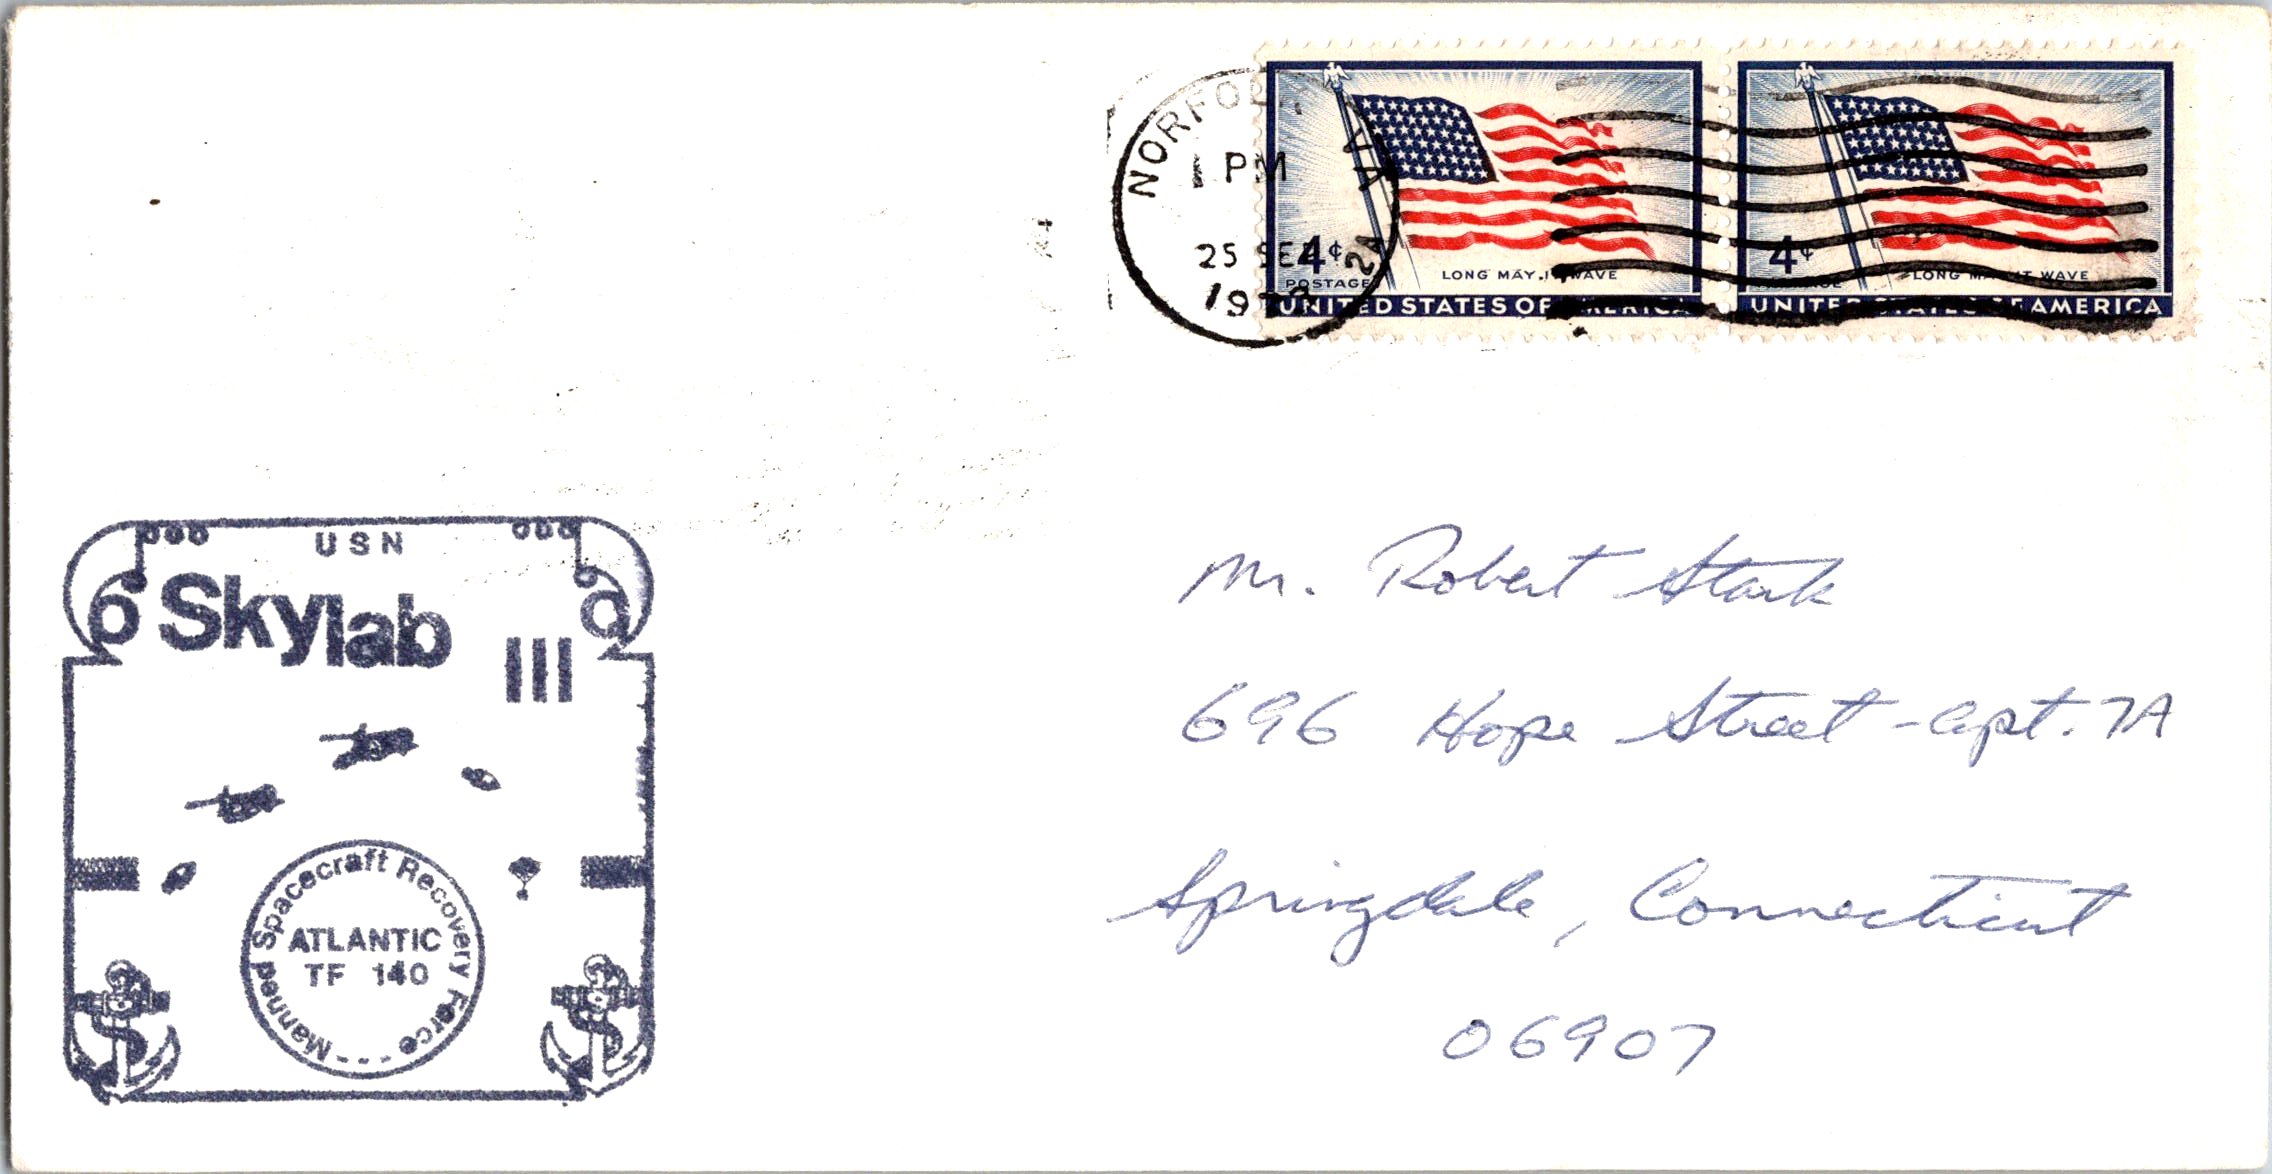 NORFOLK, VA
1 PM
25 SEP
1973
2A
4¢
POSTAGE
LONG MAY IT WAVE
UNITED STATES OF AMERICA
4¢
POSTAGE
LONG MAY IT WAVE
UNITED STATES OF AMERICA
USN
Skylab
III
Manned Spacecraft Recovery Force
ATLANTIC
TF 140
Mr. Robert Stark
696 Hope Street - Apt. 7A
Springdale, Connecticut
06907